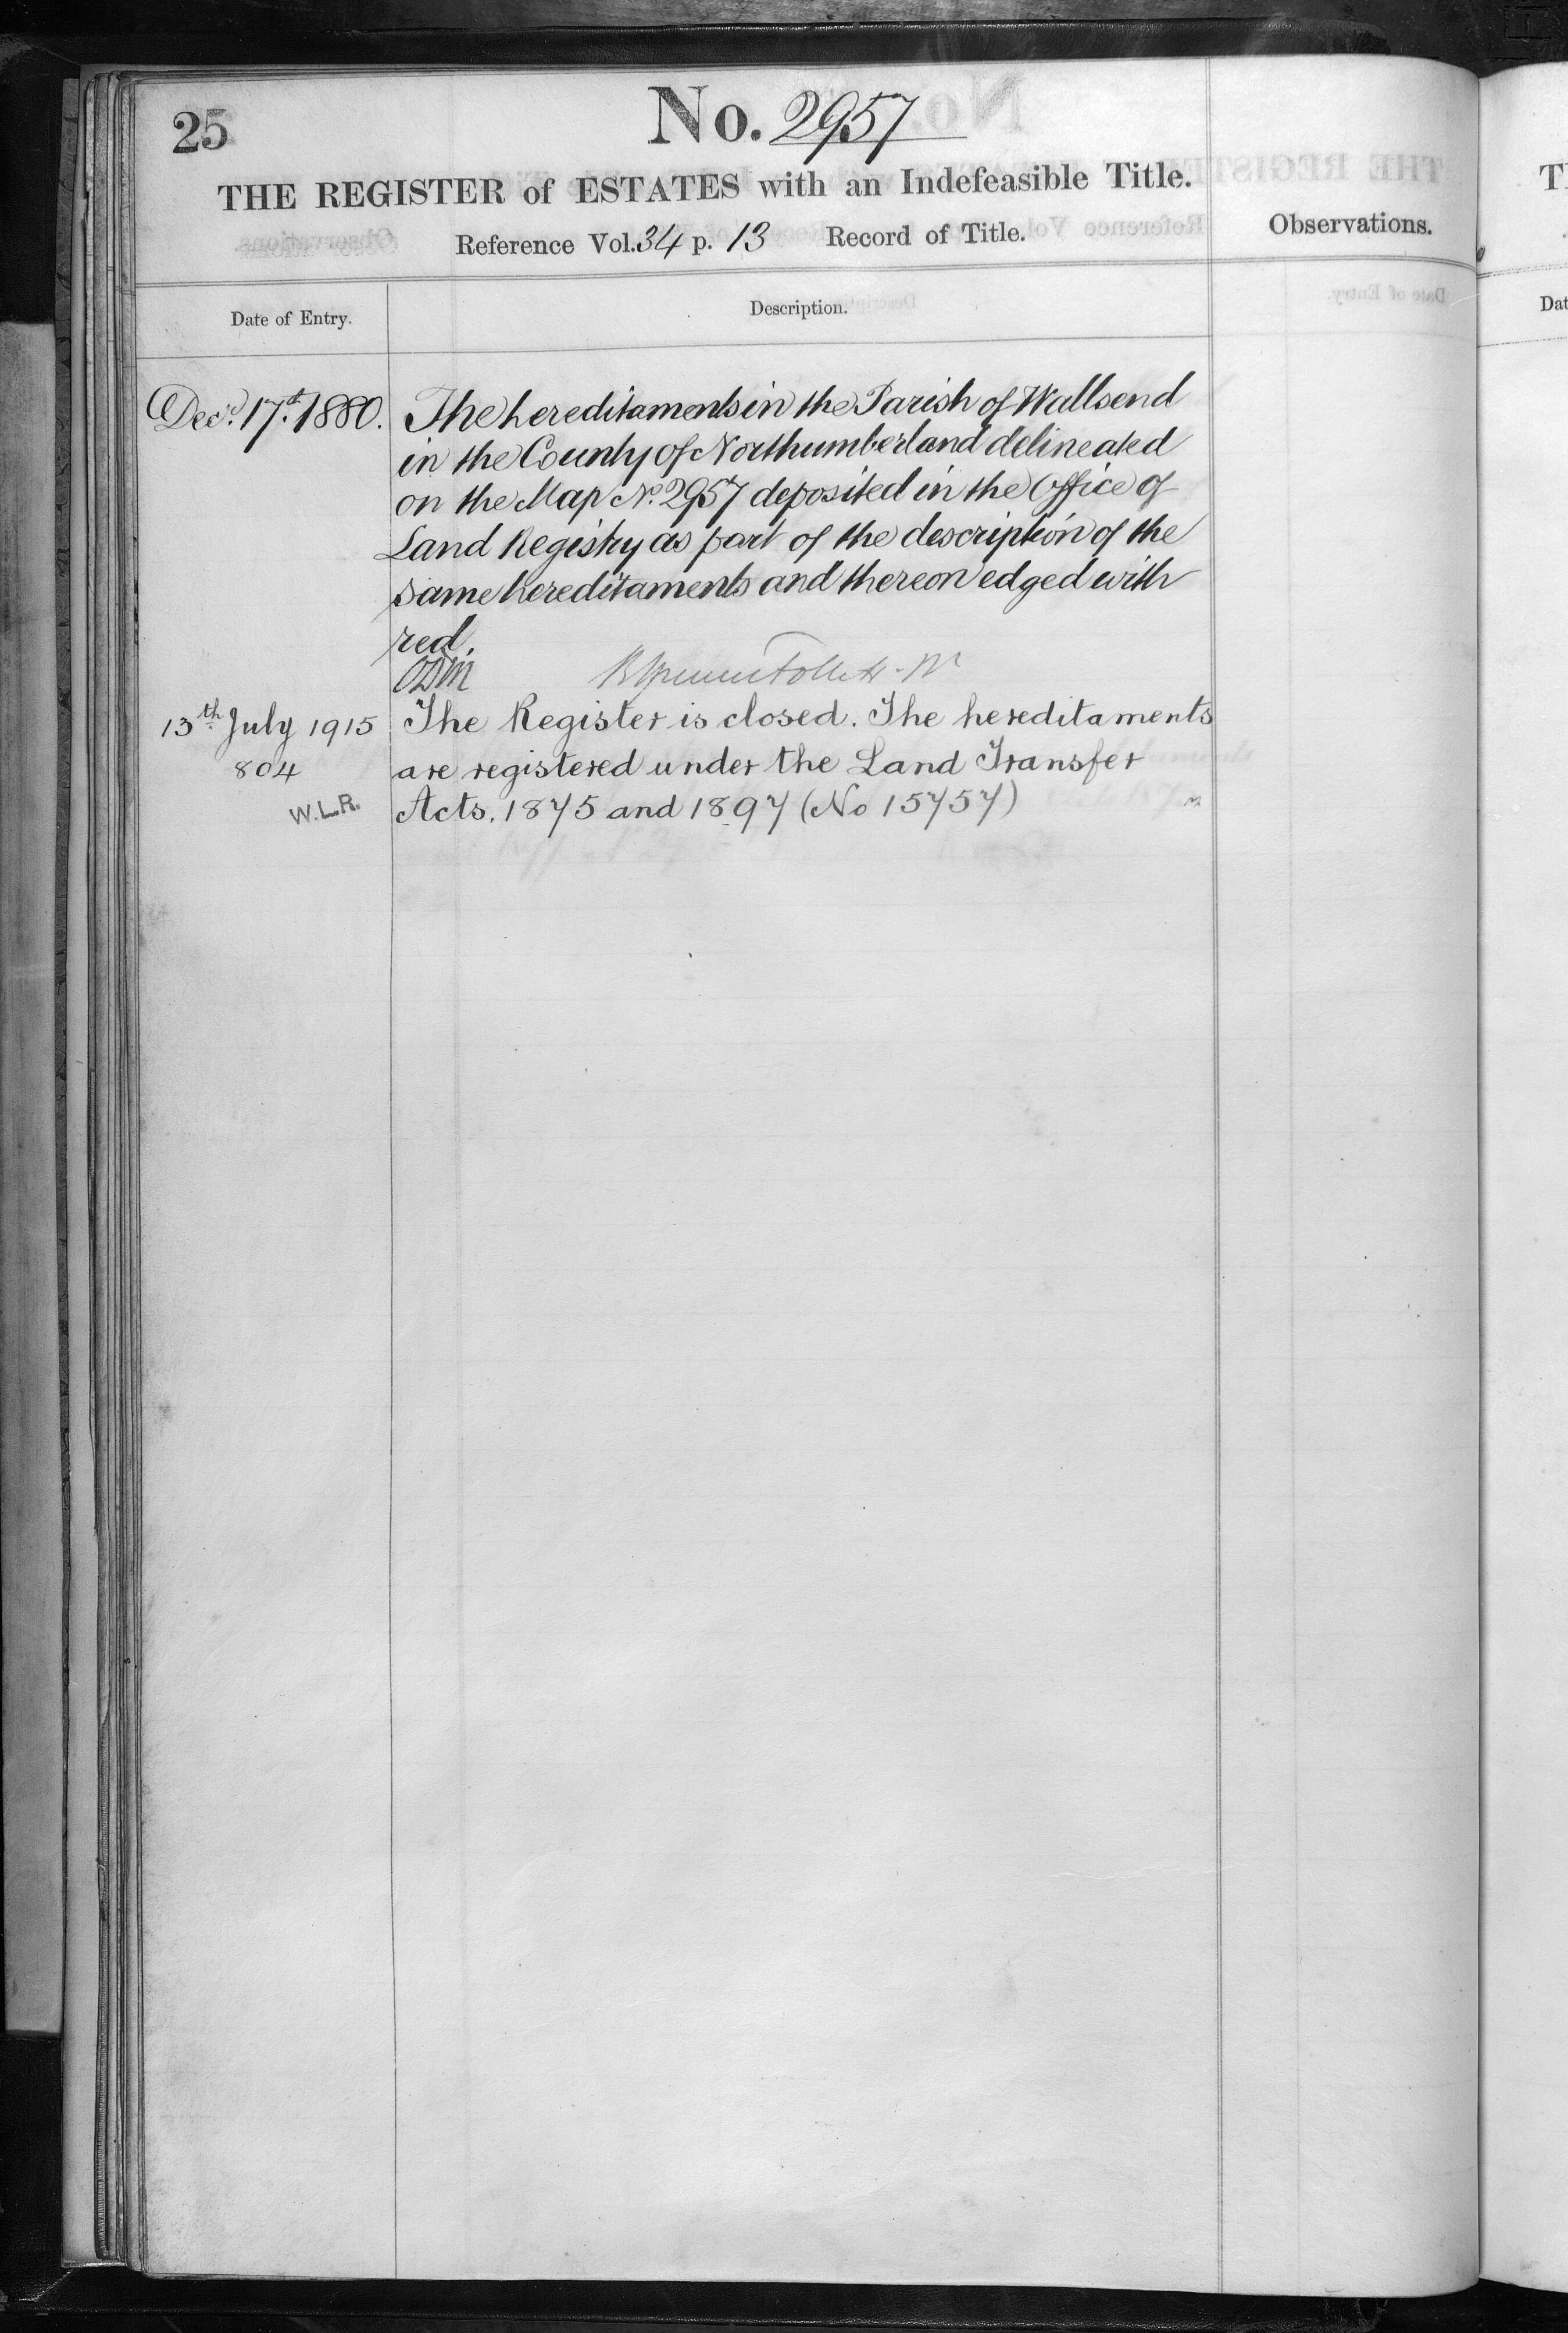 25
No. 2957
THE REGISTER of ESTATES with an Indefeasible Title.
Reference Vol. 34 p. 13 Record of Title.
Observations.
Date of Entry.
Description.
Decr. 17th. 1880. The hereditaments in the Parish of Wallsend
in the County of Northumberland delineated
on the Map No. 2957 deposited in the Office of
Land Registry as part of the description of the
same hereditaments and thereon edged with
red.
13th July 1915 The Register is closed. The hereditaments
804 are registered under the Land Transfer
W.L.R. Acts, 1875 and 1897 (No 15757)